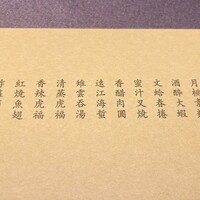 酒醉大蝦
文蛤春捲
蜜汁叉燒
香醋肉圓
江海
雲吞湯
清蒸虎福
香辣虎福
紅燒魚翅